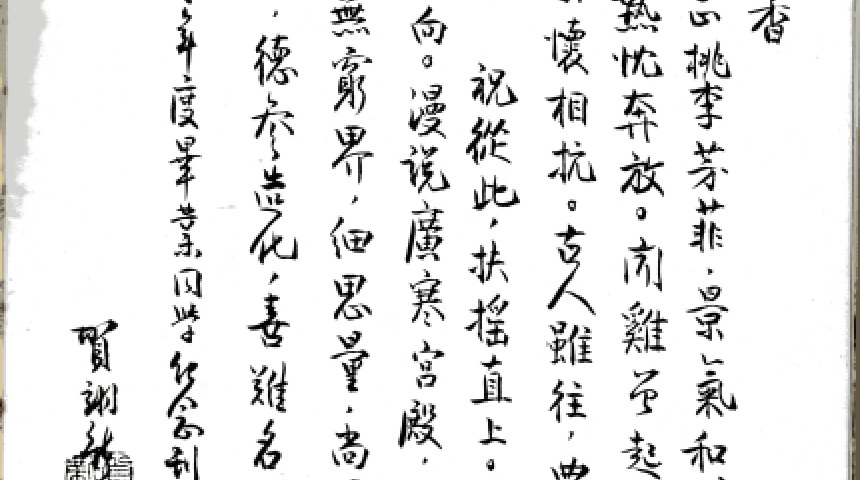 香
桃李芬菲，景氣和，
熱忱奔放。聞雞曾起
懷相抗。古人雖往，典
祝從此，扶搖直上。
向。漫說廣寒宮殿，
無窮界，細思量，尚
，德參造化，善難名
年度畢業同學紀念刊
賀翊新